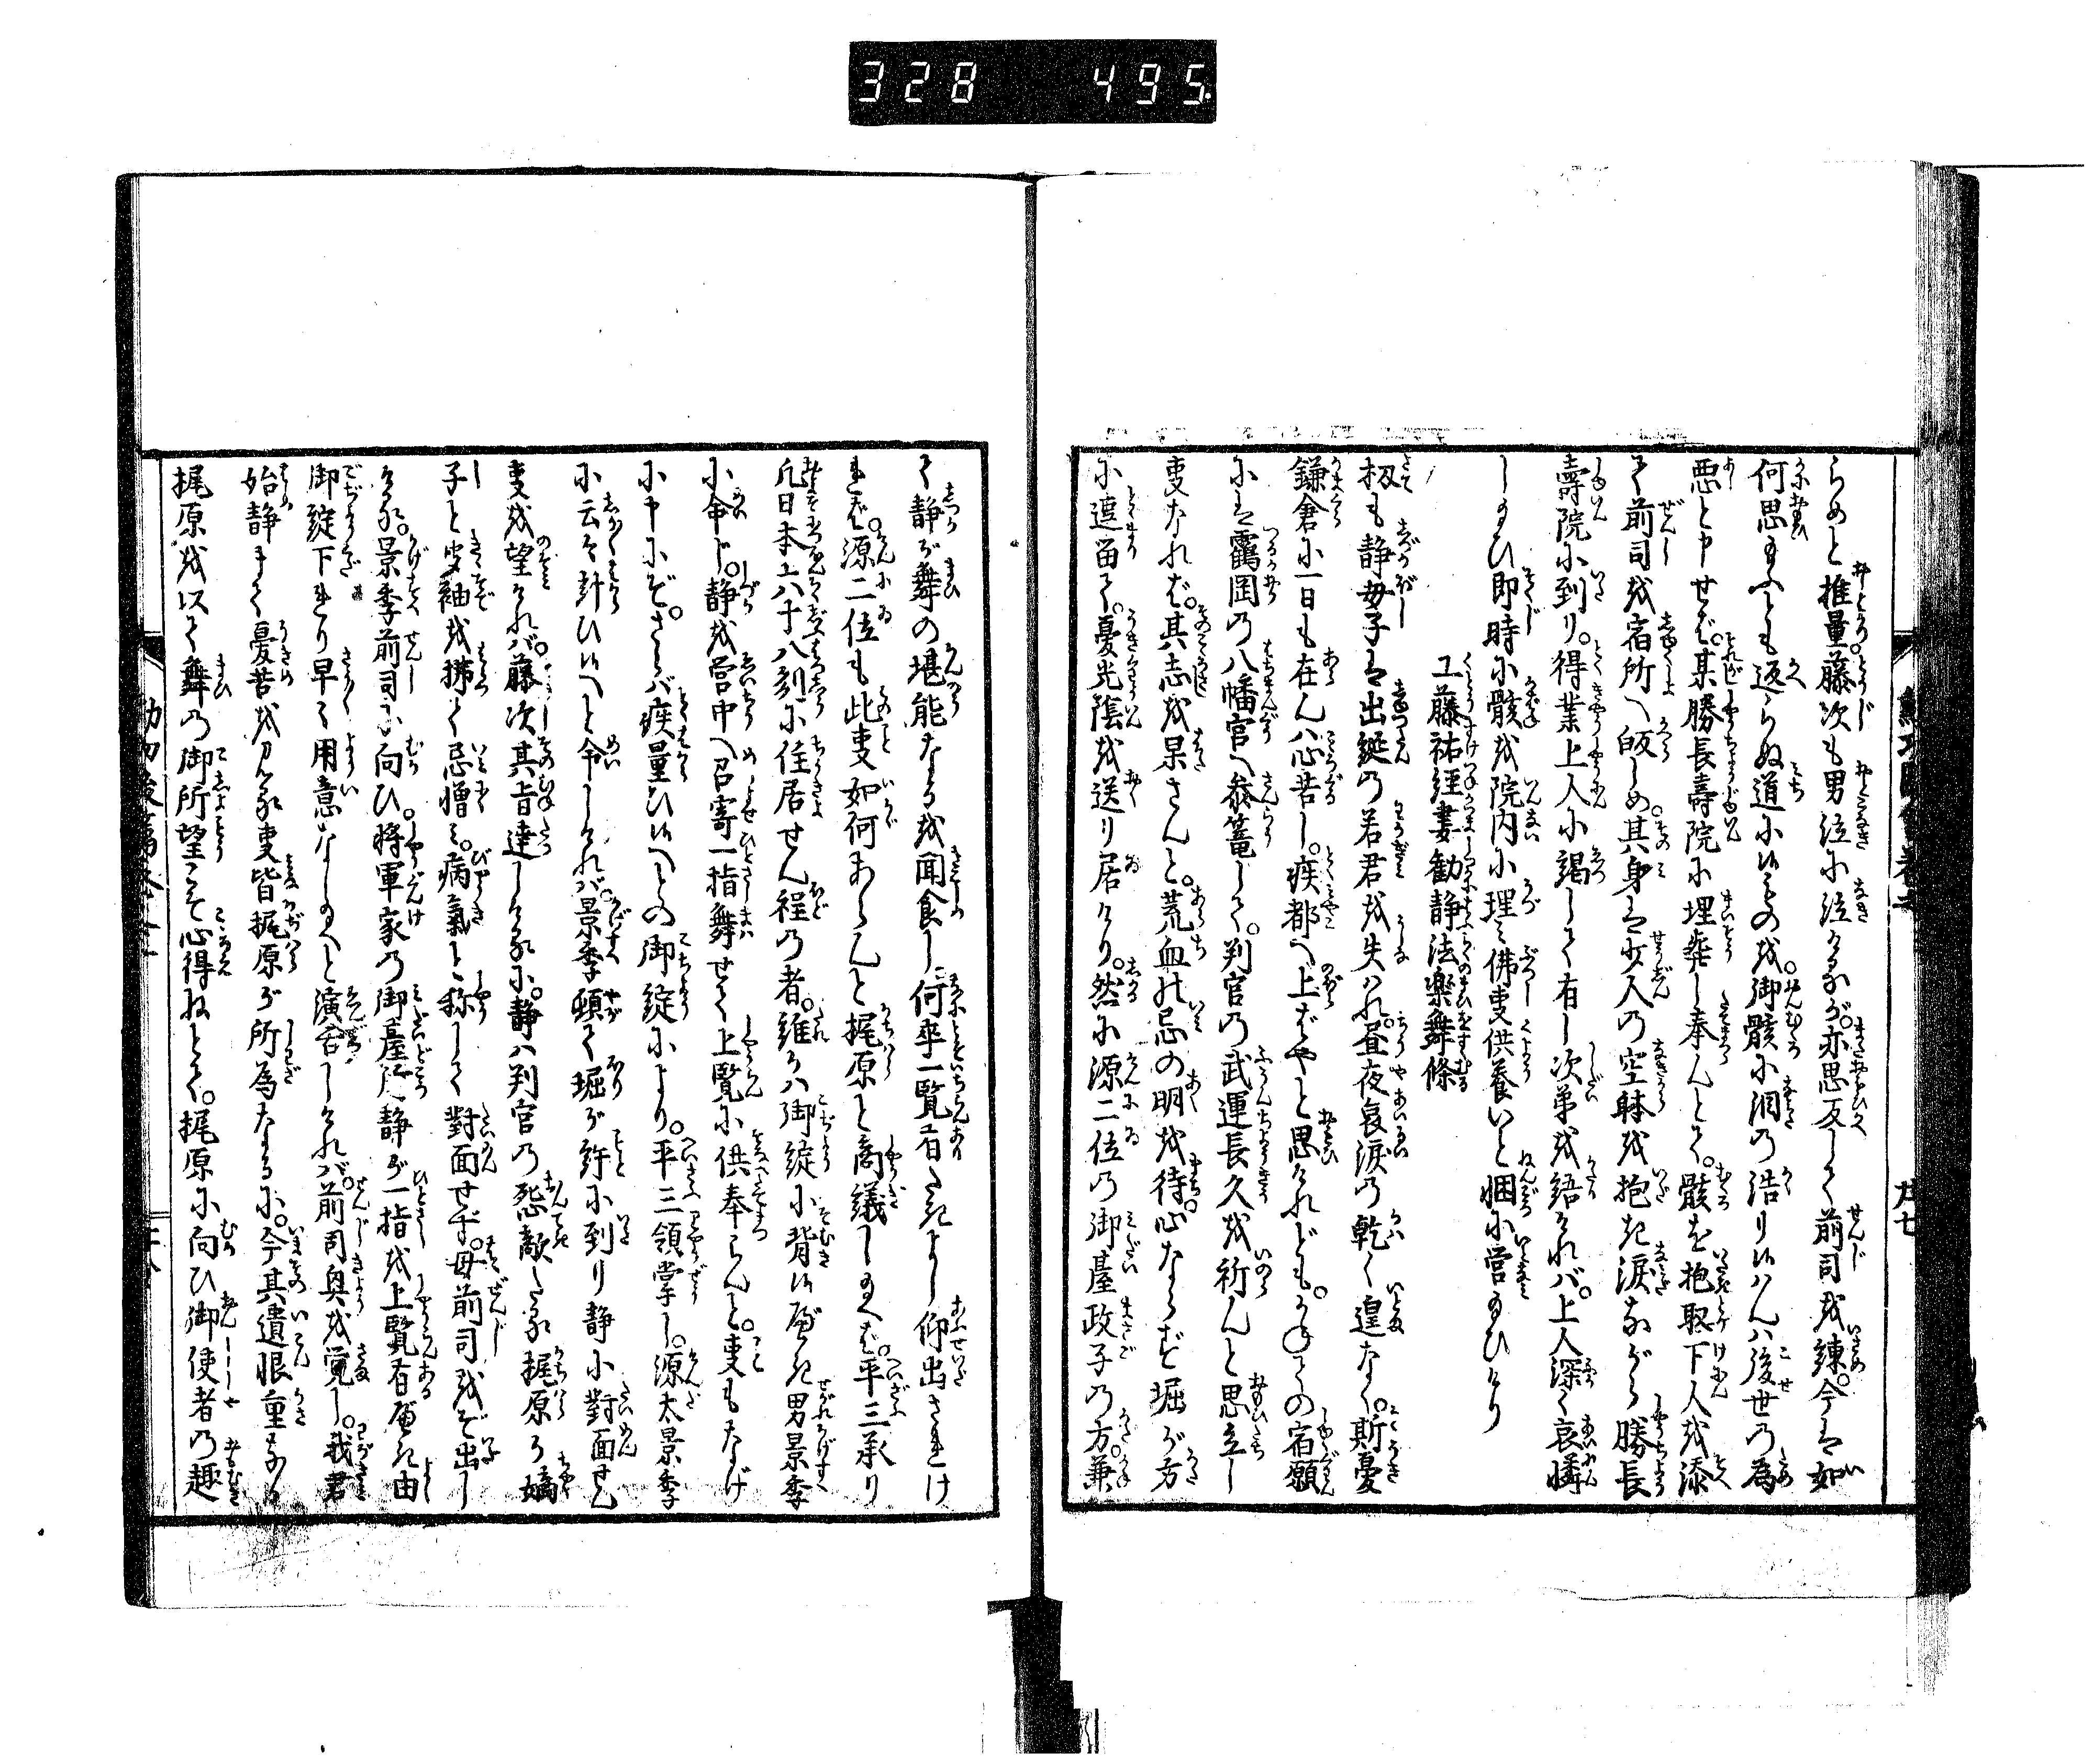 328 495
らめと推量藤次も男泣に泣けるが。亦思反して前司を諫。今は如
何思ふとも返らぬ道に候ものを。御骸に泪の浩り候はんは後世の為
悪と申せば。某勝長寿院に埋葬し奉んとて。骸を抱取下人を添
て前司を宿所へ皈しめ。其身は少人の空躰を抱き涙ながら勝長
寿院に到り。得業上人に謁して有し次第を語ければ。上人深く哀憐
し給ひ即時に骸を院内に埋み佛事供養いと悃に営給ひけり
工藤祐経妻勧静法楽舞條
扨も静母子は出誕の若君を失はれ。昼夜哀涙の乾く遑なく。斯憂
鎌倉に一日も在んは心苦し。疾都へ上ばやと思けれども。かねての宿願
には靏岡の八幡宮へ参篭して。判官の武運長久を祈んと思立し
事なれば。其志を果さんと。荒血の忌の明を待。心ならず堀が方
に逗留て。憂光陰を送り居けり。然に源二位の御䑓政子の方。兼
て静が舞の堪能なるを聞食し何卒一覧有たきよし仰出されけ
れば。源二位も此事如何あらんと梶原と商議し給へば。平三承り
凡日本六十八刕に住居せん程の者。誰かは御綻に背候べき男景季
に命じ。静を営中へ召寄一指舞せて上覧に供奉らんと。事もなげ
に申にぞ。さらば疾量ひ候へとの御綻により。平三領掌し。源太景季
に云々計ひ候へと命しければ。景季頓て堀が許に到り静に對面せん
事を望ければ。藤次其旨達しけるに。静は判官の怨敵たる梶原が嫡
子と聞袖を拂て忌憎み。病氣と称して對面せず。母前司をぞ出し
ける。景季前司に向ひ。将軍家の御䑓所静が一指を上覧有べき由
御綻下れり早く用意なし給へと演舌しければ。前司興を覚し。我君
始静まで憂苦を見る事皆梶原が所為なるに。今其遺恨重なる
梶原を以て舞の御所望こそ心得ねとて。梶原に向ひ御使者の趣